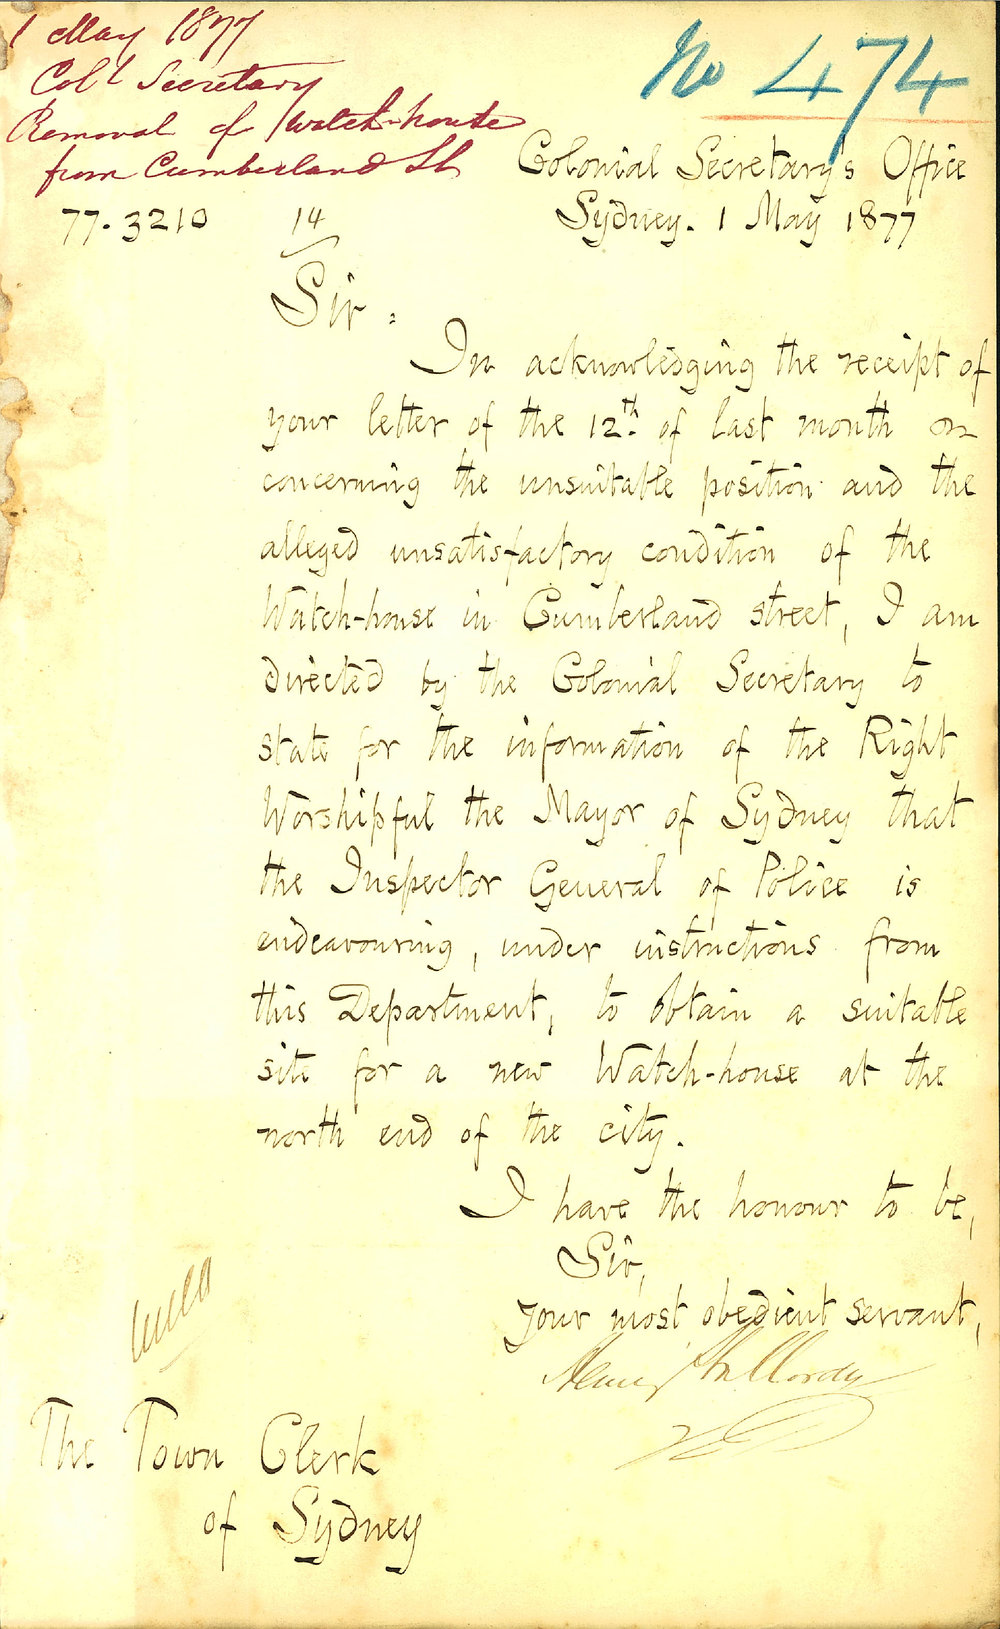 1 May 1877
Col^l Secretary
Removal of Watch-house
from Cumberland St
No 474
Colonial Secretary's Office
Sydney. 1 May 1877
77.3210 14
Sir:
In acknowledging the receipt of
your letter of the 12th. of last month on
concerning the unsuitable position and the
alleged unsatisfactory condition of the
Watch-house in Cumberland street, I am
directed by the Colonial Secretary to
state for the information of the Right
Worshipful the Mayor of Sydney that
the Inspector General of Police is
endeavouring, under instructions from
this Department, to obtain a suitable
site for a new Watch-house at the
north end of the city.
I have the honour to be,
Sir,
your most obedient servant,
Henry Halloran
The Town Clerk
of Sydney